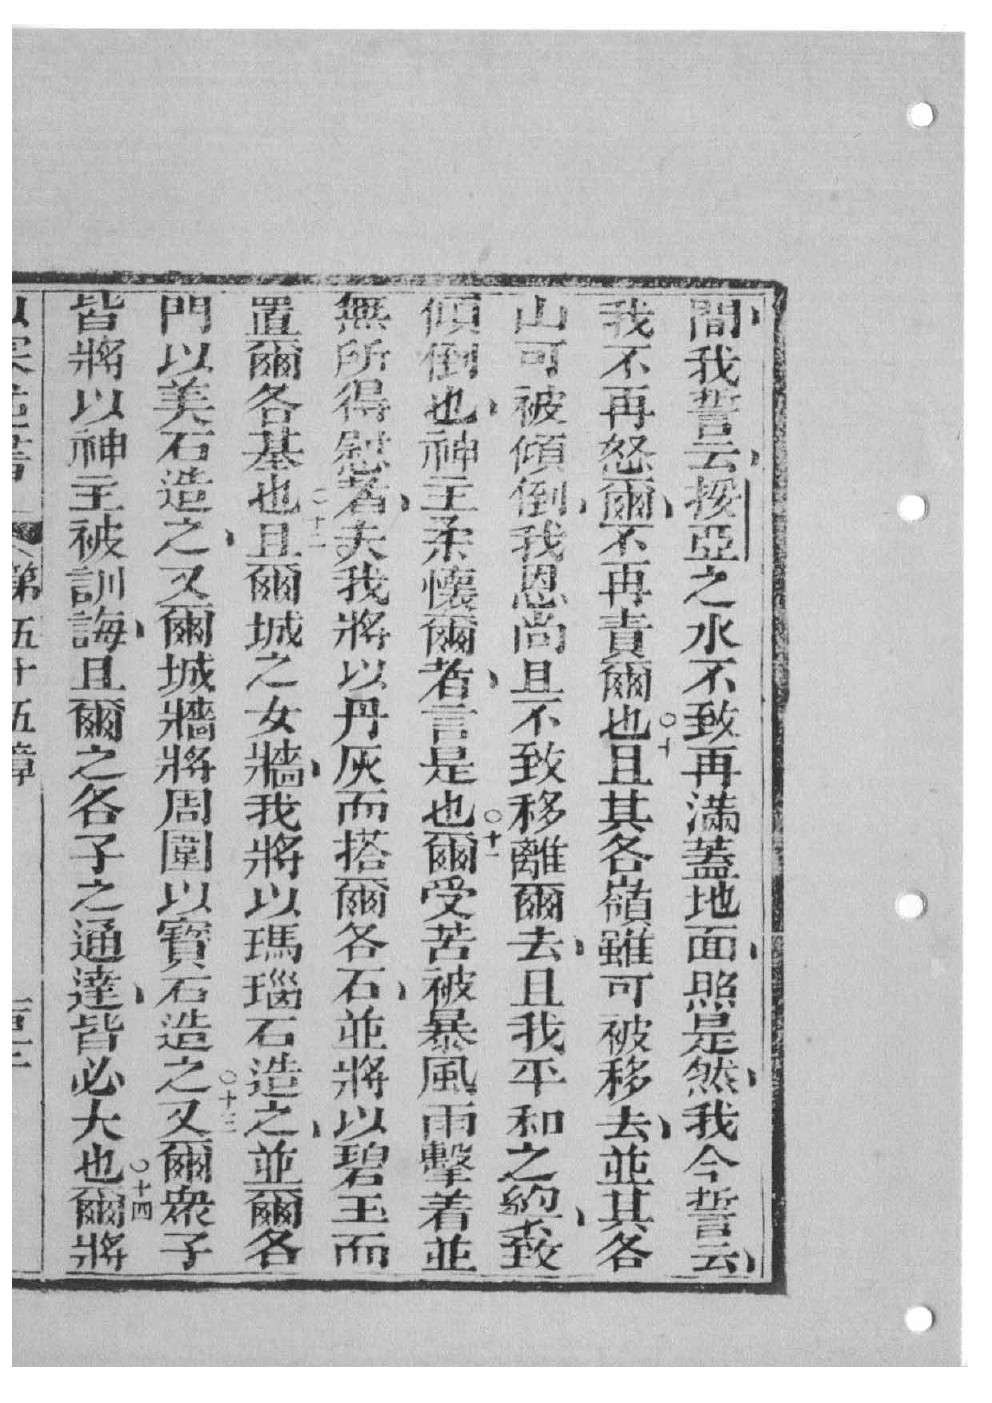 間我誓云挼亞之水不致再滿蓋地面照是然我今誓云
我不再怒爾不再責爾也○十且其各嶺雖可被移去並其各
山可被傾倒我恩尚且不致移離爾去且我平和之約不致
傾倒也神主柔懷爾者言是也○十一爾受苦被暴風雨擊着並
無所得慰者夫我將以丹灰而搭爾各石並將以碧玉而
置爾各基也○十二且爾城之女牆我將以瑪瑙石造之並爾各
門以美石造之又爾城牆將周圍以寶石造之○十三又爾衆子
皆將以神主被訓誨且爾之各子之通達皆必大也○十四爾將
第五十五章